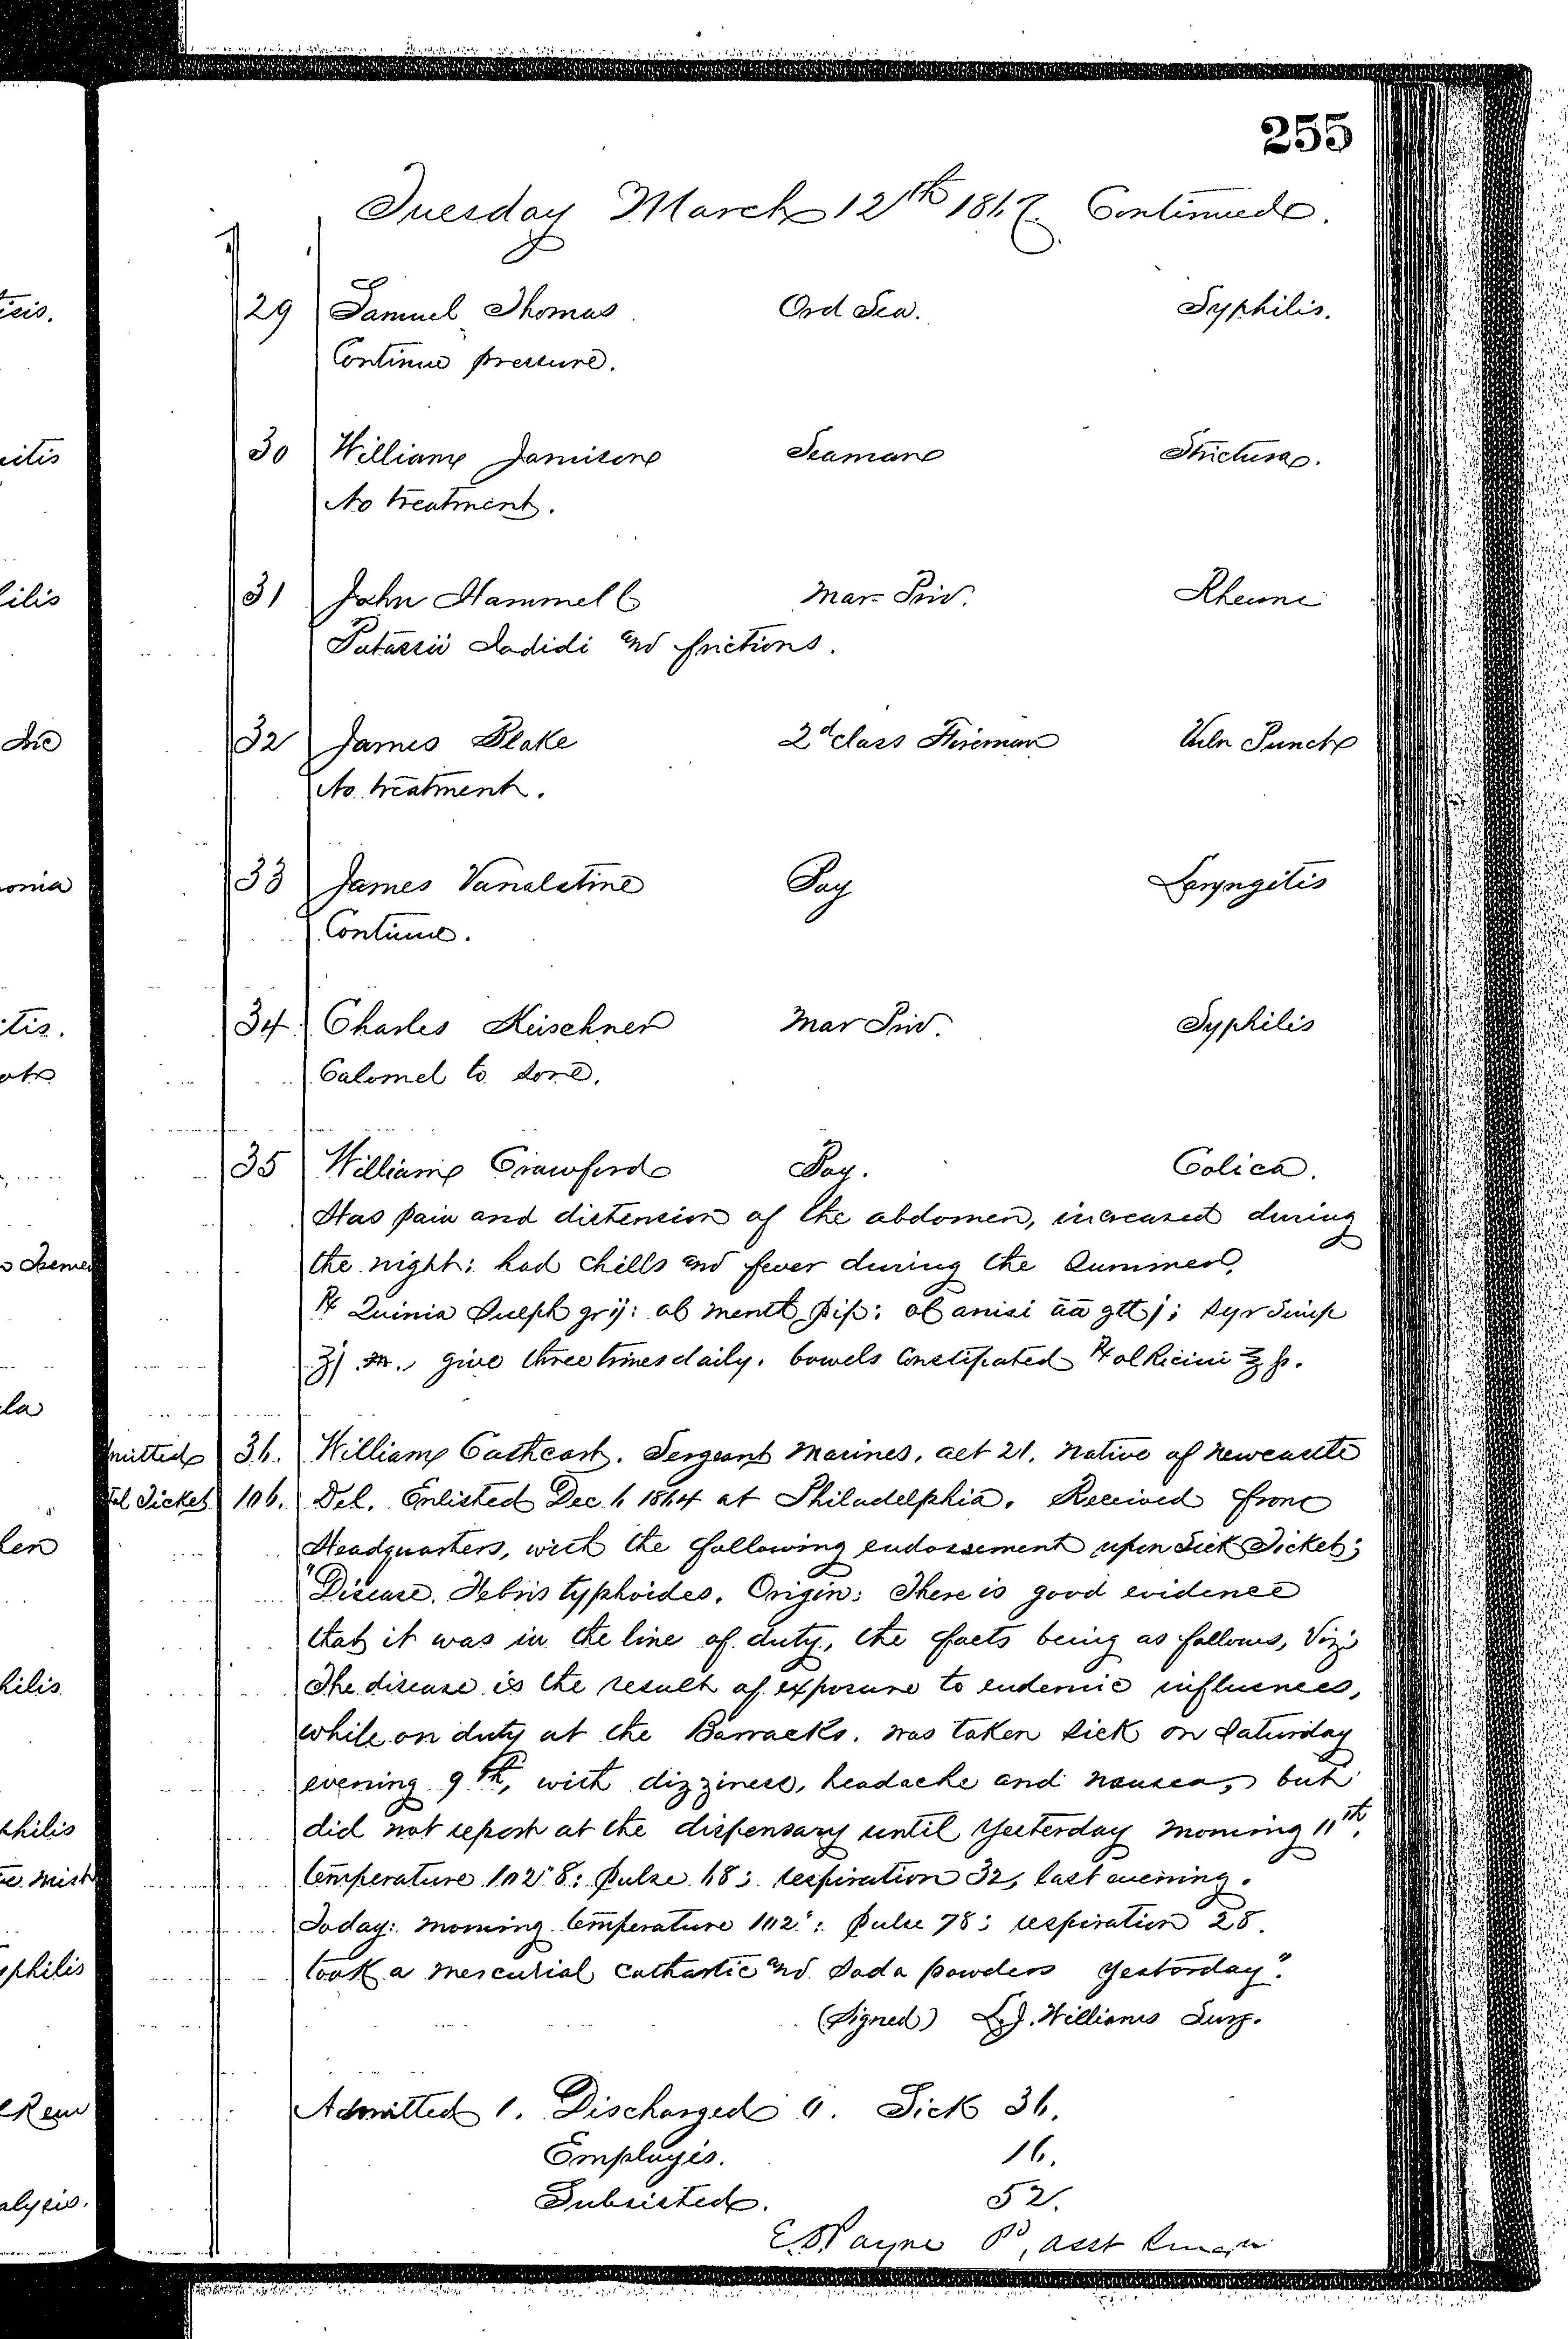 255
Tuesday March 12th 1867. Continued.
29 Samuel Thomas Ord Sea. Syphilis.
Continue pressure.
30 William Jamison Seaman Stricture.
No treatment.
31 John Hammell Mar Priv. Rheume
Potassii Iodidi and frictions.
32 James Blake 2d class Fireman Vuln Punct
No treatment.
33 James Vanalstine Boy Laryngitis
Continue.
34 Charles Keischner Mar Priv. Syphilis
Calomel to sore.
35 William Crawford Boy. Colica.
Has pain and distension of the abdomen, increased during
the night: had chills and fever during the summer.
℞ Quinia Sulph grij: ol menth pip: ol anisi āā gttj; syr simp
ʒj m. give three times daily. bowels constipated ℞ ol Ricini ℥ss.
mitted 36. William Cathcart. Sergeant Marines, aet 21. native of Newcastle
tal Ticket 106. Del. Enlisted Dec 6 1864 at Philadelphia. Received from
Headquarters, with the following endorsement upon Sick Ticket;
"Disease. Febris typhoides. Origin: There is good evidence
that it was in the line of duty, the facts being as follows, Viz:
The disease is the result of exposure to endemic influences,
while on duty at the Barracks. was taken sick on Saturday
evening 9th, with dizziness, headache and nausea, but
did not report at the dispensary until yesterday morning 11th.
temperature 102°8: pulse 68: respiration 32, last evening.
Today: morning temperature 102°: pulse 78: respiration 28.
took a mercurial cathartic and soda powders yesterday".
(Signed) L.J. Williams Surg.
Admitted 1. Discharged 0. Sick 36.
Employés. 16.
Subsisted. 52.
E. S. Payne Pd, asst Surgn